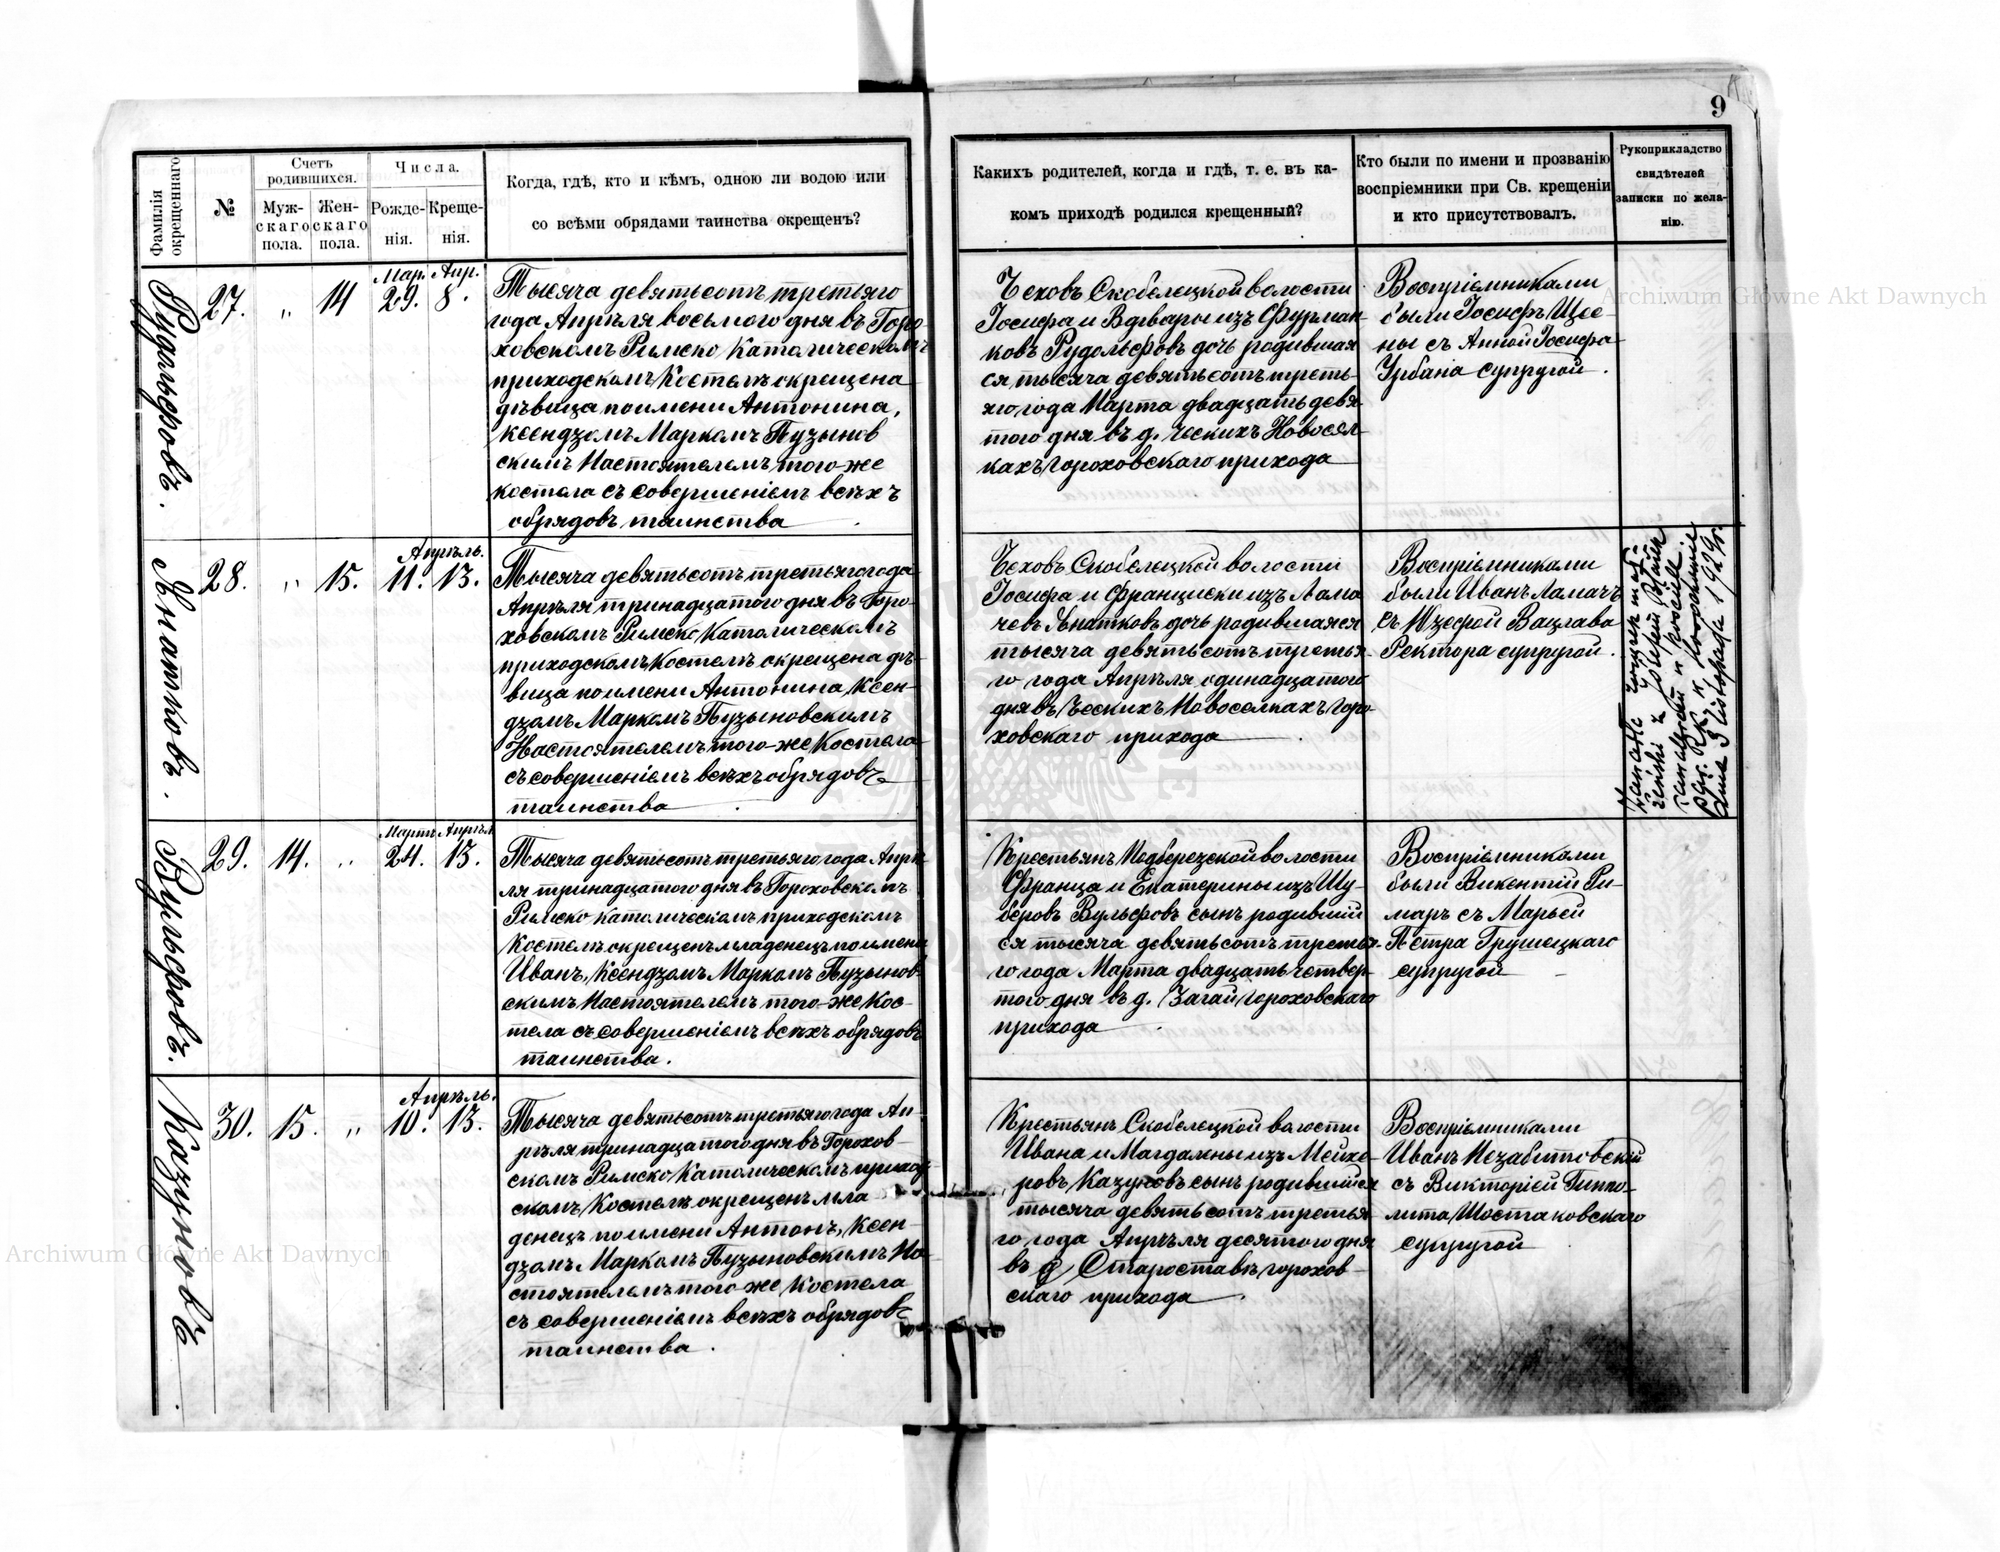 9
Фамилія окрещеннаго
№
Счетъ родившихся.
Мужскаго пола.
Женскаго пола.
Числа.
Рожденія.
Крещенія.
Когда, гдѣ, кто и кѣмъ, одною ли водою или
со всѣми обрядами таинства окрещенъ?
Какихъ родителей, когда и гдѣ, т. е. въ ка-
комъ приходѣ родился крещенный?
Кто были по имени и прозванію
воспріемники при Св. крещеніи
и кто присутствовалъ.
Рукоприкладство
свидѣтелей
записки по жела-
нію.
Рудольфовъ.
27.
"
14
Мар. 29.
Апр. 8.
Тысяча девятьсотъ третьяго
года Апрѣля восьмого дня въ Горо-
ховскомъ Римско Католическомъ
приходскомъ Костелѣ окрещена
дѣвица по имени Антонина,
Ксендзомъ Маркомъ Пузынов
скимъ Настоятелемъ того-же
костела съ совершеніемъ всѣхъ
обрядовъ таинства
Чеховъ Скобелецкой волости
Іосифа и Варвары изъ Фурман-
ковъ Рудольфовъ дочь родившая
ся тысяча девятьсотъ треть-
яго года Марта двадцать девя-
того дня въ д. Ческихъ Новосел-
кахъ Гороховскаго прихода
Воспріемниками
были Іосифъ Щес-
ны съ Анной Іосифа
Урбана супругой.
Игнатковъ.
28.
"
15.
Апрѣль.
11.
13.
Тысяча девятьсотъ третьяго года
Апрѣля тринадцатого дня въ Горо-
ховскомъ Римско Католическомъ
приходскомъ Костелѣ окрещена дѣ-
вица по имени Антонина, Ксен-
дзомъ Маркомъ Пузыновскимъ
Настоятелемъ того-же Костела
съ совершеніемъ всѣхъ обрядовъ
таинства
Чеховъ Скобелецкой волости
Іосифа и Франциски изъ Лама
чевъ Игнатковъ дочь родившаяся
тысяча девятьсотъ третья-
го года Апрѣля одинадцатого
дня въ Ческихъ Новоселкахъ Горо-
ховскаго прихода
Воспріемниками
были Иванъ Ламачъ
съ Юзефой Вацлава
Ректора супругой.
1929 r.
Вульфовъ.
29.
14.
"
Мартъ 24.
Апрѣль 13.
Тысяча девятьсотъ третьяго года Апрѣ-
ля тринадцатого дня въ Гороховскомъ
Римско Католическомъ приходскомъ
Костелѣ окрещенъ младенецъ по имени
Иванъ, Ксендзомъ Маркомъ Пузынов-
скимъ Настоятелемъ того-же Кос-
тела съ совершеніемъ всѣхъ обрядовъ
таинства.
Крестьянъ Подберезской волости
Франца и Екатерины изъ Шу-
беровъ Вульфовъ сынъ родившій
ся тысяча девятьсотъ третья-
го года Марта двадцать четвер-
того дня въ д. Загай Гороховскаго
прихода
Воспріемниками
были Викентій Ри-
маръ съ Марьей
Петра Грушецкаго
супругой
Казуновъ
30.
15.
"
Апрѣль.
10.
13.
Тысяча девятьсотъ третьяго года Ап-
рѣля тринадцатого дня въ Горохов-
скомъ Римско Католическомъ приход-
скомъ Костелѣ окрещенъ мла
денецъ по имени Антонъ, Ксен-
дзомъ Маркомъ Пузыновскимъ На-
стоятелемъ того-же Костела
съ совершеніемъ всѣхъ обрядовъ
таинства.
Крестьянъ Скобелецкой волости
Ивана и Магдалены изъ Мейхе-
ровъ Казуновъ сынъ родившійся
тысяча девятьсотъ третья
го года Апрѣля десятого дня
въ д. Староставъ Горохов-
скаго прихода
Воспріемниками
Иванъ Незабитовскій
съ Викторіей Гиппо-
лита Шостаковскаго
супругой
Archiwum Główne Akt Dawnych
Archiwum Główne Akt Dawnych